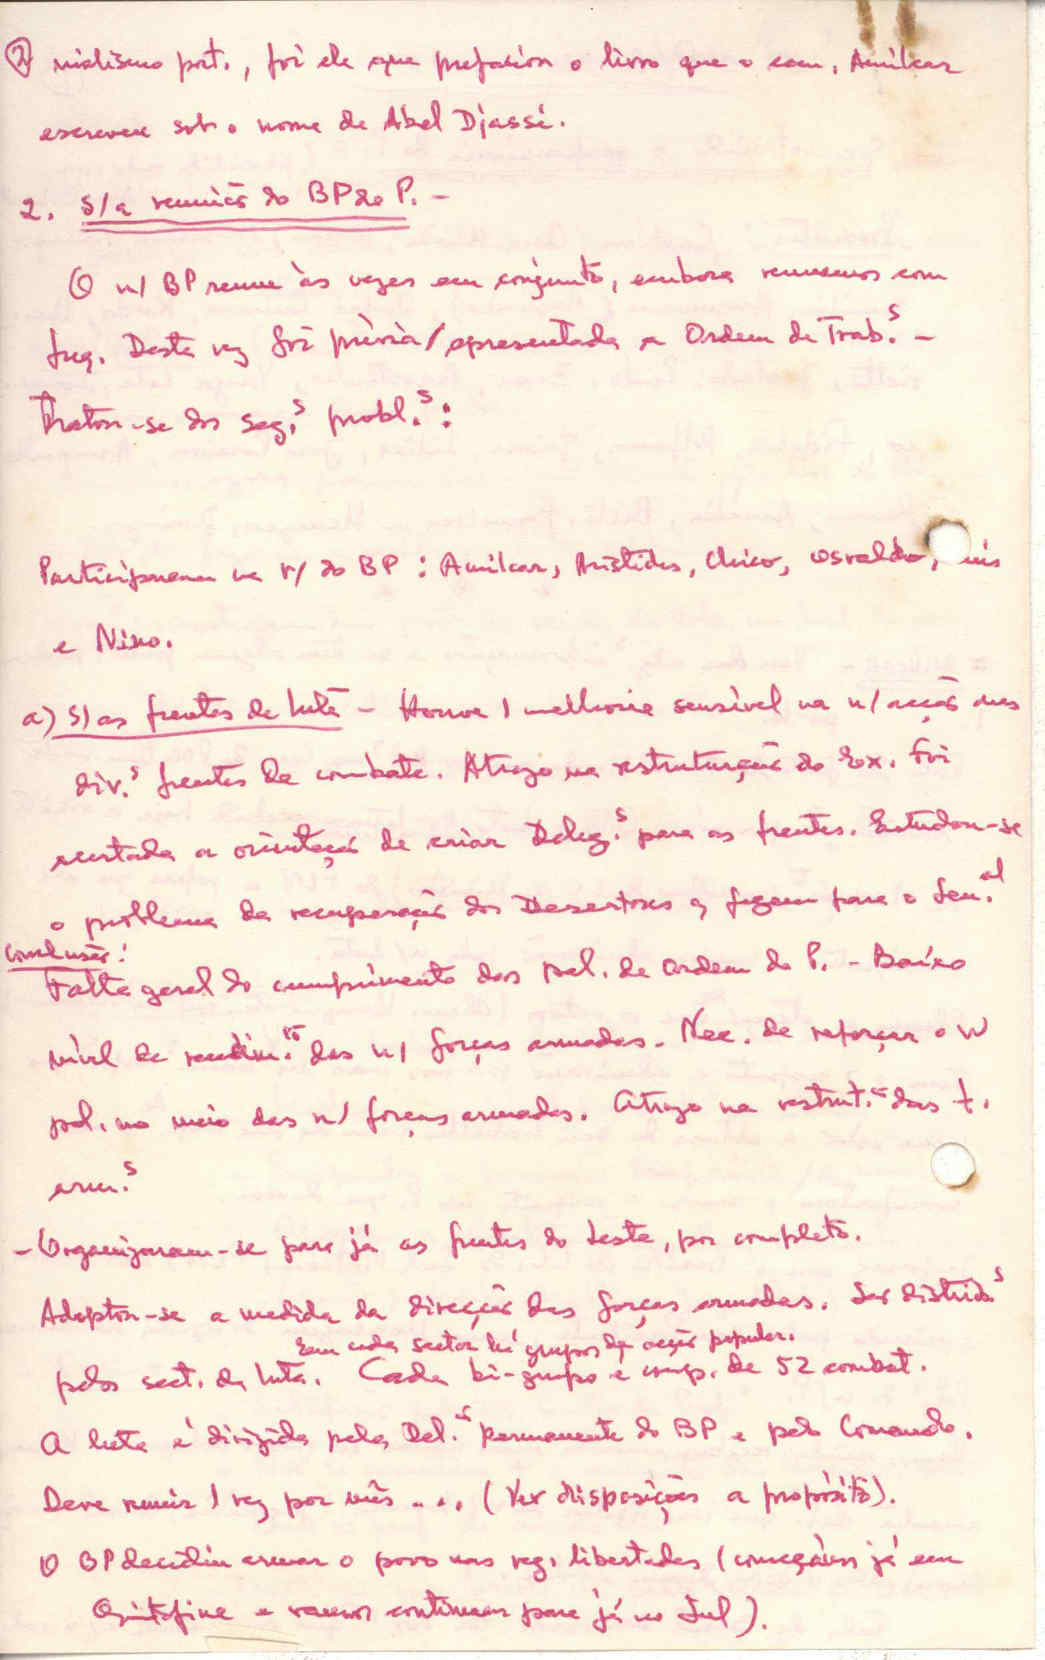 ② nialismo port., foi ele que prefaciou o livro que o cam. Amílcar
escreveu sob o nome de Abel Djassi.
2. S/a reunião do BP do P. -
O n/ BP reune às vezes em conjunto, embora reunamos com
freq. Desta vez foi prèvia/ apresentada a Ordem de Trab.s -
Tratou-se dos seg.s probl.s:
Participaram na r/ do BP: Amílcar, Aristides, Chico, Osvaldo,
e Nino.
a) S/ as frentes de luta - Houve 1 melhoria sensível na n/ acção nas
div.s frentes de combate. Atrazo na restruturação do Ex. Foi
acertada a orientação de criar Deleg.s para as frentes. Estudou-se
o problema da recuperação dos Desertores q fogem para o Sen.al
Conclusão:
Falta geral do cumprimento das pal. de ordem do P. - Baixo
nível de rendim.to das n/ forças armadas. Nec. de reforçar o W
pol. no meio das n/ forças armadas. Atrazo na restrut.ão das f.
arm.s
- Organizaram-se para já as frentes do Leste, por completo.
Adoptou-se a medida da direcção das forças armadas. Ser distrib.s
Em cada sector há grupos de acção popular.
pelos sect. da luta. Cada bi-grupo é comp. de 52 combat.
A luta é dirigida pela Del.ão permanente do BP e pelo Comando.
Deve reunir 1 vez por mês ... (Ver disposições a propósito).
O BP decidiu armar o povo nas reg. libertadas (começámos já em
Quitafine e vamos continuar para já no Sul).